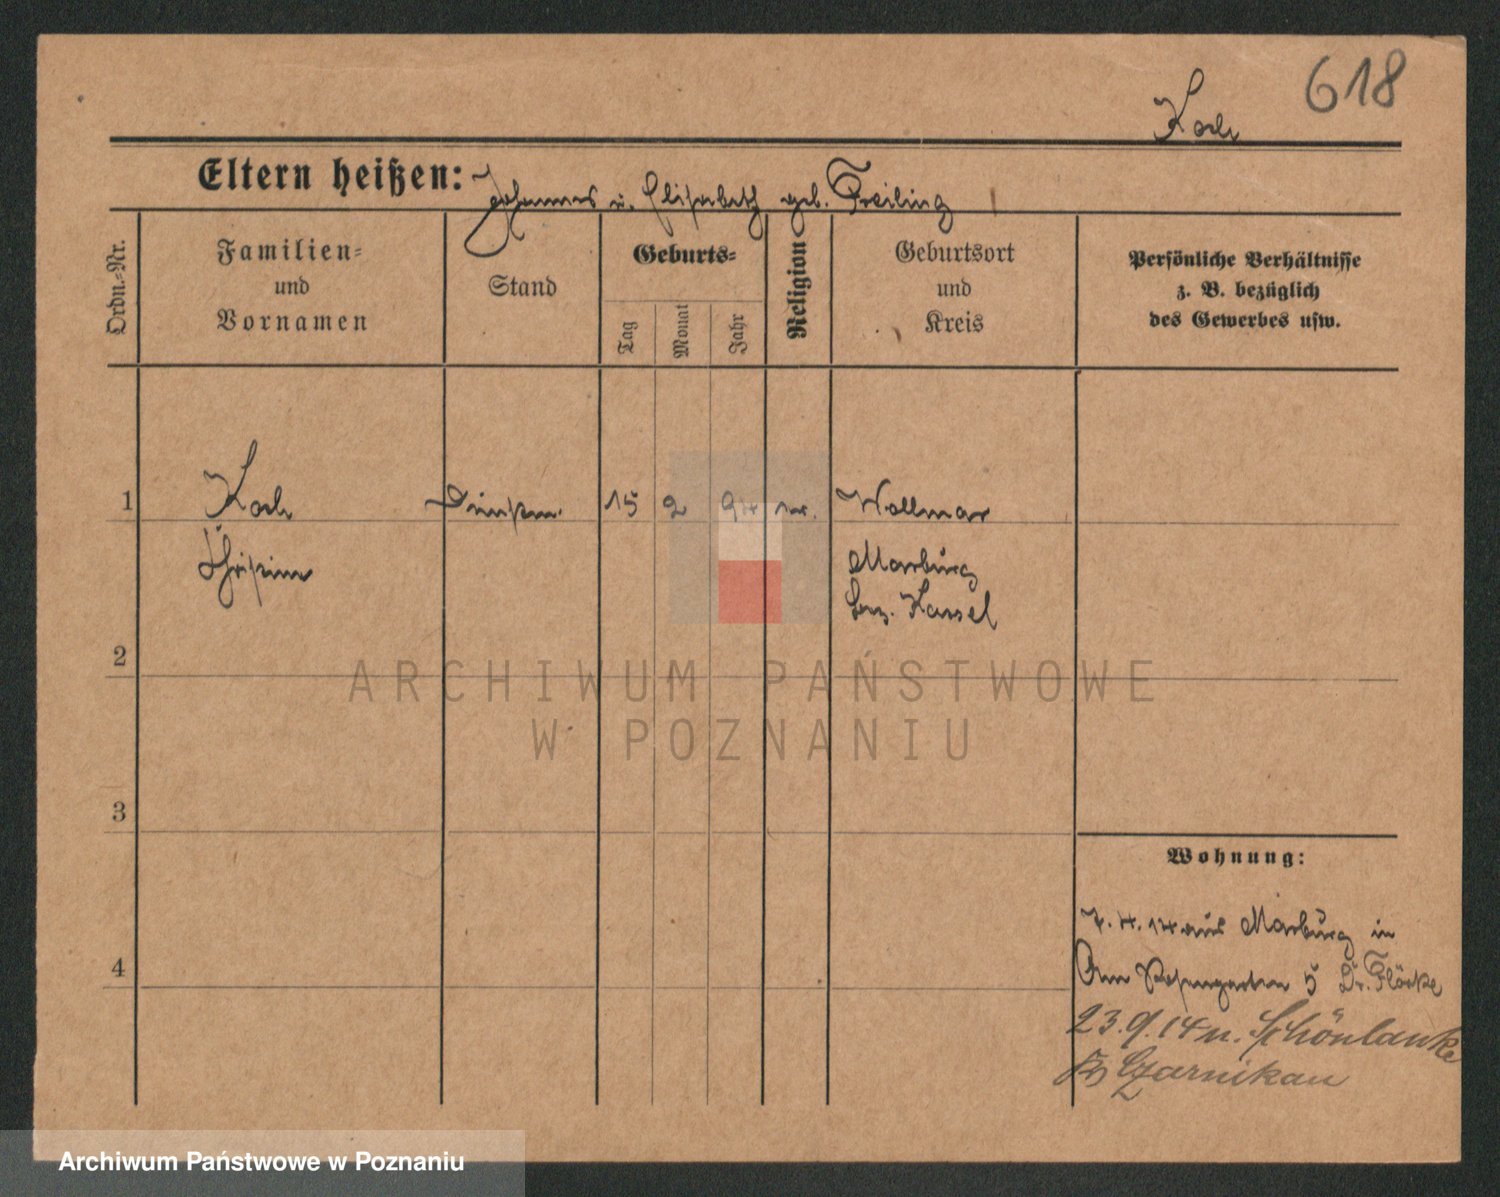 618
Koch
Eltern heißen: Johannes u. Elisabeth geb. Freiling
Ordn.-Nr.
Familien-
und
Vornamen
Stand
Geburts-
Tag
Monat
Jahr
Religion
Geburtsort
und
Kreis
Persönliche Verhältnisse
z. B. bezüglich
des Gewerbes usw.
1
Koch
15 2 94
Wollmar
Marburg
Bez. Kassel
2
ARCHIWUM PAŃSTWOWE
W POZNANIU
3
Wohnung:
7. 4. 14 aus Marburg in
4
Am Rosengarten 5 Dr. Flörke
23.9.14 n. Schönlanke
Czarnikau
Archiwum Państwowe w Poznaniu